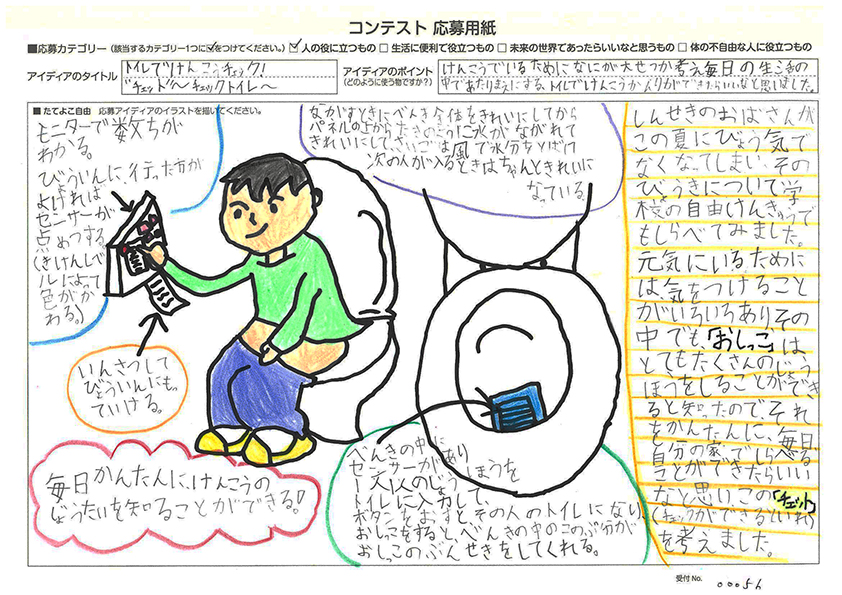 コンテスト 応募用紙
■応募カテゴリー（該当するカテゴリー1つに☑をつけてください。）☑人の役に立つもの □生活に便利で役立つもの □未来の世界であったらいいなと思うもの □体の不自由な人に役立つもの
アイディアのタイトル
トイレでけんこうチェック！
〜チェットイレ〜
アイディアのポイント
（どのように使う物ですか？）
けんこうでいるためになにが大せつか考え毎日の生活の
中であたりまえにする、トイレでけんこうかくにんができたらいいなと思いました。
■たてよこ自由 応募アイディアのイラストを描いてください。
モニターで数ちが
わかる。
びょういんに、行った方が
よければ
センサーが
点めつする。
(きけんレベ
ルによって
色がか
わる。)
いんさつして
びょういんにもっ
ていける。
毎日かんたんに、けんこうの
じょうたいを知ることができる！
ながすときにべんき全体をきれいにしてから
パネルの上からたきのように水がながれて
きれいにして、さいごは風で水分をとばけ
次の人が入るときはちゃんときれいに
なっている。
べんきの中に
センサーがあり
一人一人のじょうほうを
トイレに入力して、
ボタンをおすと、その人のトイレになり、
おしっこをすると、べんきの中のこのぶ分が
おしっこのぶんせきをしてくれる。
しんせきのおばさんが
この夏にびょう気で
なくなってしまい、その
びょうきについて学
校の自由けんきゅうで
もしらべてみました。
元気にいるために
は、気をつけること
がいろいろありその
中でも、「おしっこ」は
とてもたくさんのじょう
ほうをしることができ
ると知ったので、それ
をかんたんに、毎日
自分の家でしらべる
ことができたらいい
なと思い、この「チェット」
(チェックができるトイレ)
を考えました。
受付No.